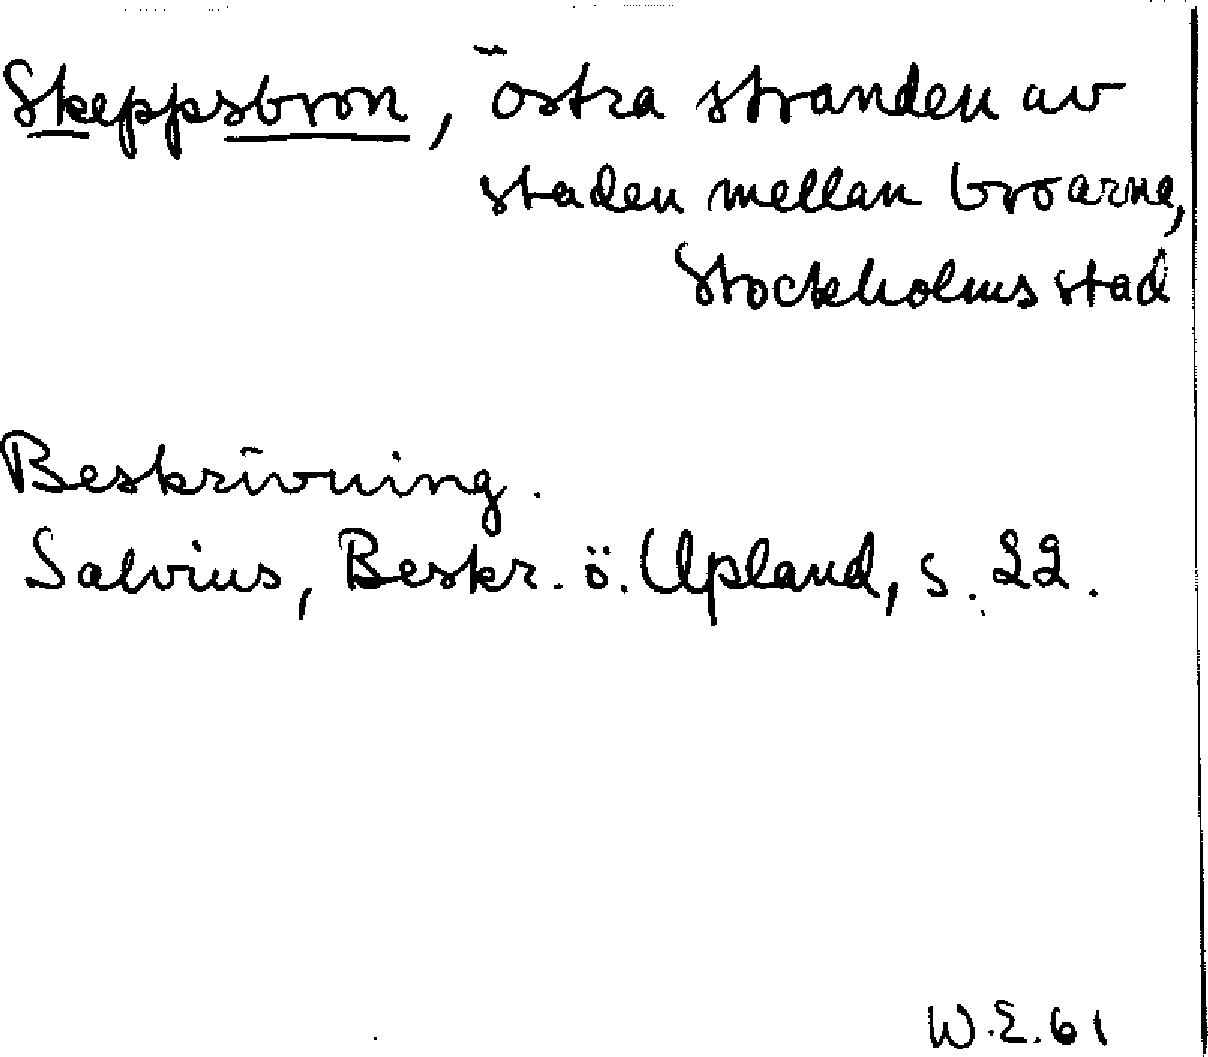 Skeppsbron, östra stranden av
staden mellan broarna,
Stockholms stad
Beskrivning.
Salvius, Beskr. ö. Upland, s. 22.
W.E. 61